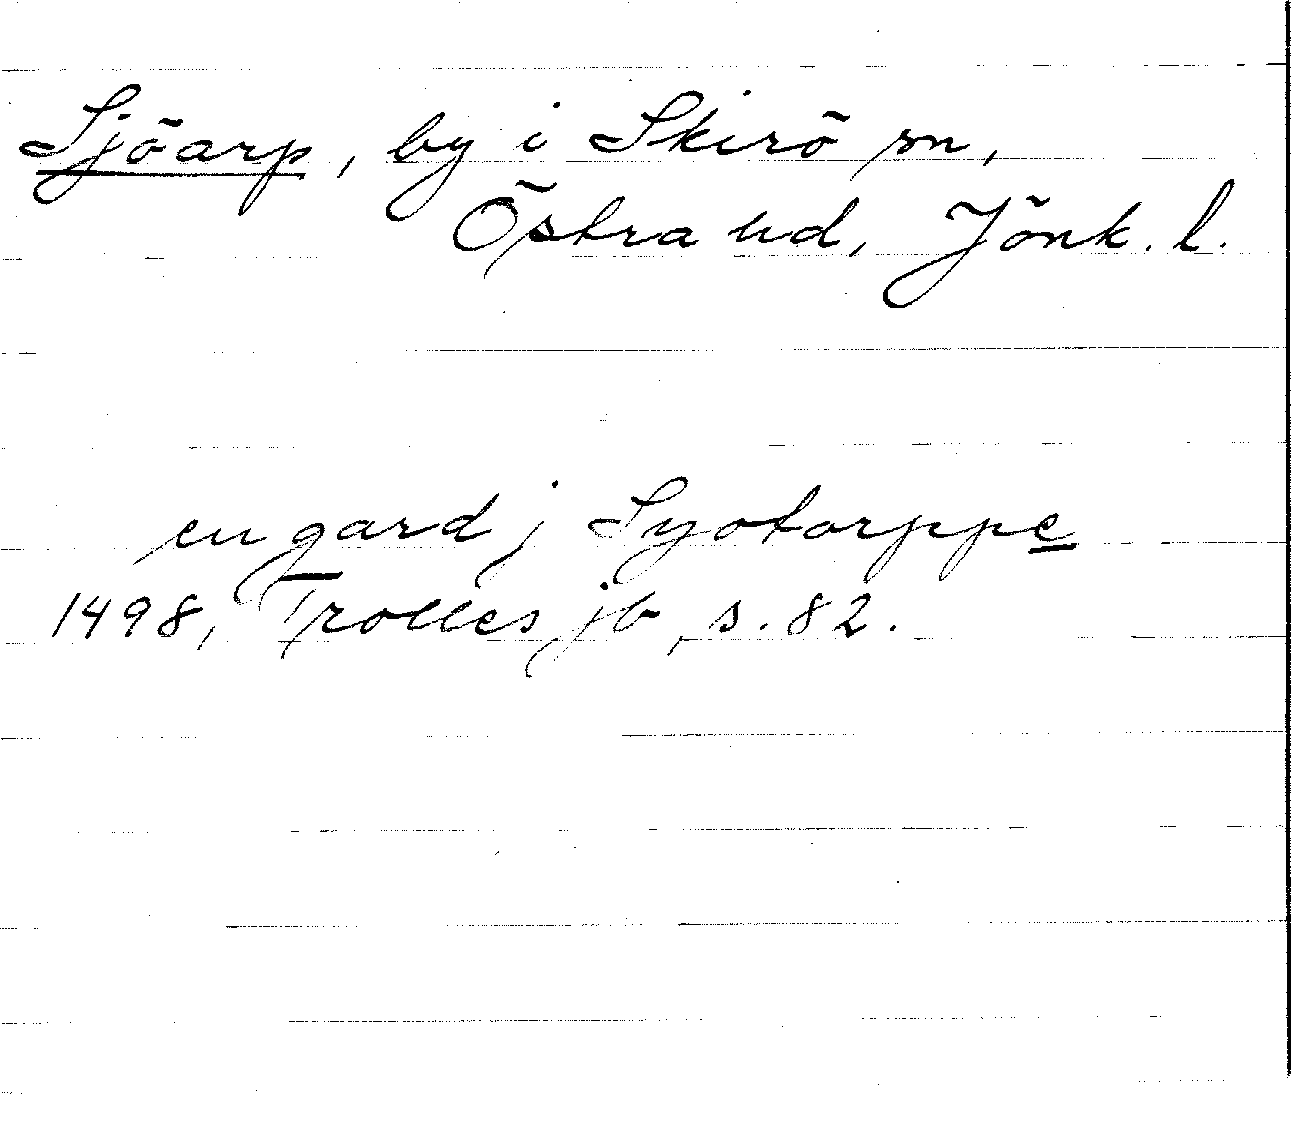 Sjöarp, by i Skirö sn,
Östra hd, Jönk. l.
en gard j Syotorppe
1498, Trolles jb, s. 82.